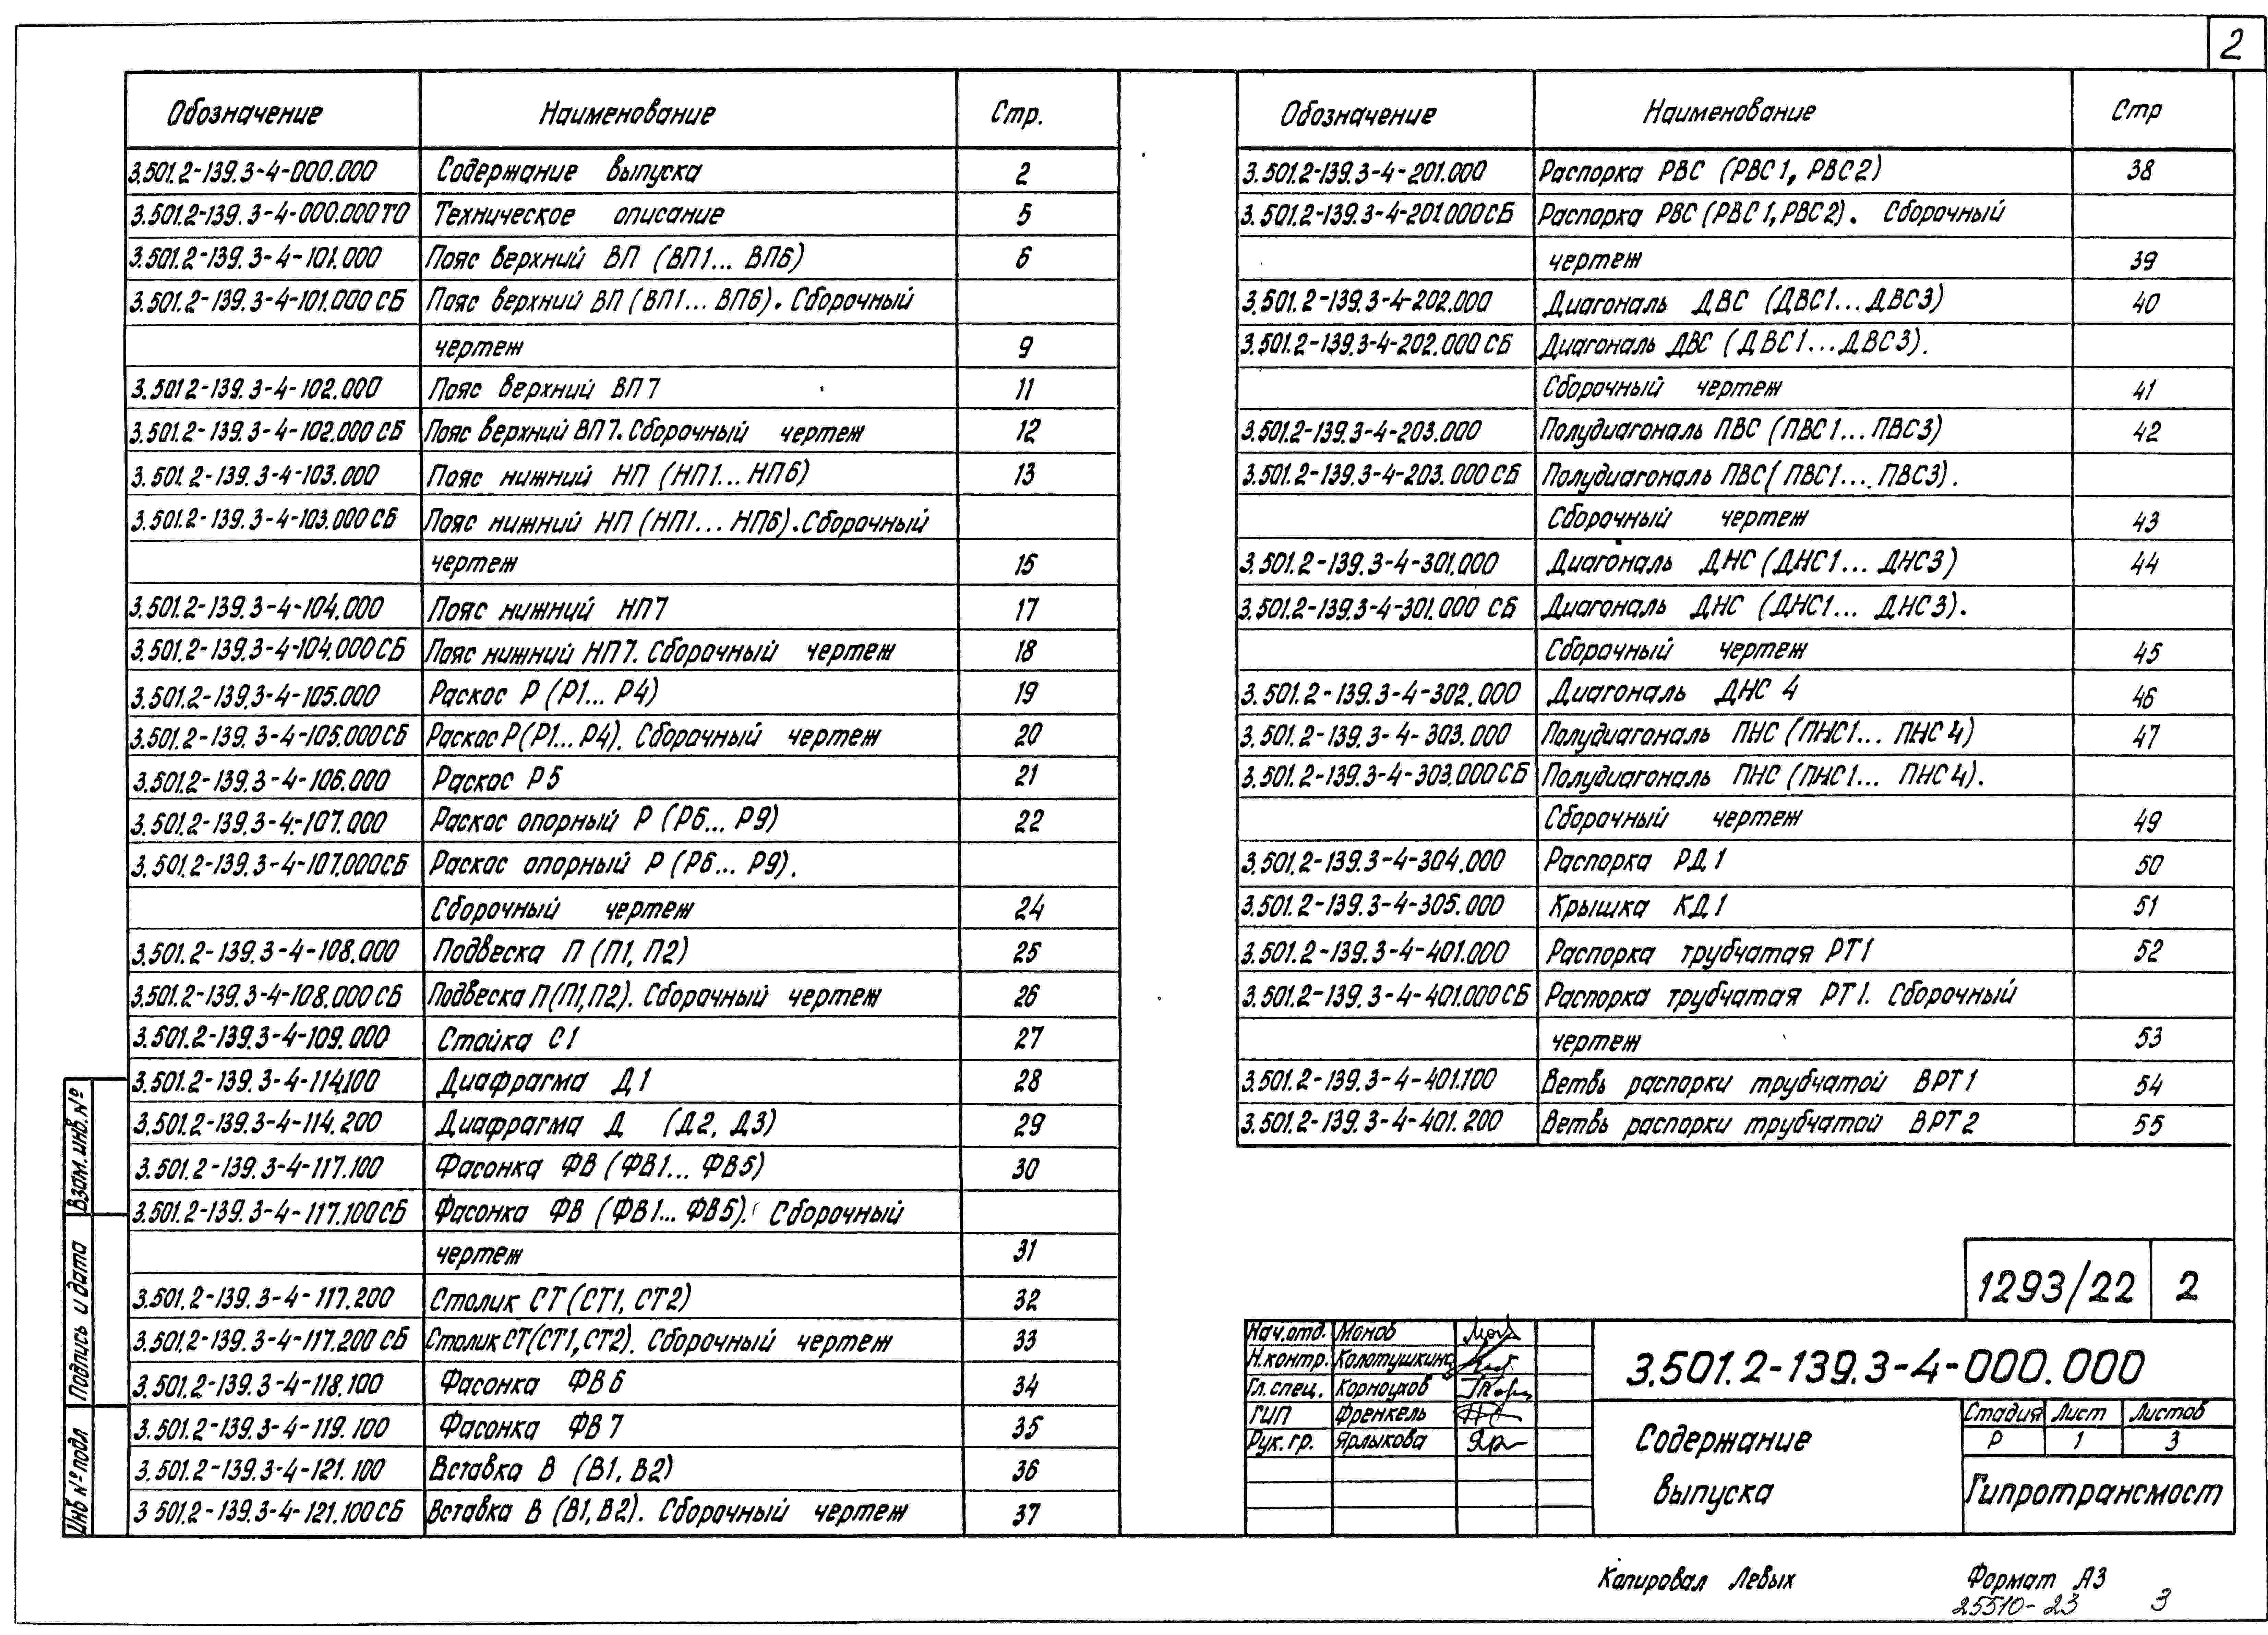 2
Обозначение Наименование Стр.
3.501.2-139.3-4-000.000 Содержание выпуска 2
3.501.2-139.3-4-000.000ТО Техническое описание 5
3.501.2-139.3-4-101.000 Пояс верхний ВП (ВП1... ВП6) 6
3.501.2-139.3-4-101.000 СБ Пояс верхний ВП (ВП1... ВП6). Сборочный
чертеж 9
3.501 2-139.3-4-102.000 Пояс верхний ВП7 11
3.501.2-139.3-4-102.000 СБ Пояс верхний ВП7. Сборочный чертеж 12
3.501.2-139.3-4-103.000 Пояс нижний НП (НП1... НП6) 13
3.501.2-139.3-4-103.000СБ Пояс нижний НП (НП1... НП6). Сборочный
чертеж 15
3.501.2-139.3-4-104.000 Пояс нижний НП7 17
3.501.2-139.3-4-104.000СБ Пояс нижний НП7. Сборочный чертеж 18
3.501.2-139.3-4-105.000 Раскос Р (Р1... Р4) 19
3.501.2-139.3-4-105.000СБ Раскос Р(Р1... Р4). Сборочный чертеж 20
3.501.2-139.3-4-106.000 Раскос Р5 21
3.501.2-139.3-4-107.000 Раскос опорный Р (Р6... Р9) 22
3.501.2-139.3-4-107.000СБ Раскос опорный Р (Р6... Р9).
Сборочный чертеж 24
3.501.2-139.3-4-108.000 Подвеска П (П1, П2) 25
3.501.2-139.3-4-108.000СБ Подвеска П(П1,П2). Сборочный чертеж 26
3.501.2-139.3-4-109.000 Стойка С1 27
3.501.2-139.3-4-114.100 Диафрагма Д1 28
3.501.2-139.3-4-114.200 Диафрагма Д (Д2, Д3) 29
3.501.2-139.3-4-117.100 Фасонка ФВ (ФВ1... ФВ5) 30
3.501.2-139.3-4-117.100СБ Фасонка ФВ (ФВ1... ФВ5). Сборочный
чертеж 31
3.501.2-139.3-4-117.200 Столик СТ (СТ1, СТ2) 32
3.501.2-139.3-4-117.200 СБ Столик СТ(СТ1,СТ2). Сборочный чертеж 33
3.501.2-139.3-4-118.100 Фасонка ФВ6 34
3.501.2-139.3-4-119.100 Фасонка ФВ7 35
3.501.2-139.3-4-121.100 Вставка В (В1, В2) 36
3 501.2-139.3-4-121.100СБ Вставка В (В1, В2). Сборочный чертеж 37
Обозначение Наименование Стр
3.501.2-139.3-4-201.000 Распорка РВС (РВС1, РВС2) 38
3.501.2-139.3-4-201.000СБ Распорка РВС (РВС1, РВС2). Сборочный
чертеж 39
3.501.2-139.3-4-202.000 Диагональ ДВС (ДВС1... ДВС3) 40
3.501.2-139.3-4-202.000 СБ Диагональ ДВС (ДВС1... ДВС3).
Сборочный чертеж 41
3.501.2-139.3-4-203.000 Полудиагональ ПВС (ПВС1... ПВС3) 42
3.501.2-139.3-4-203.000СБ Полудиагональ ПВС( ПВС1... ПВС3).
Сборочный чертеж 43
3.501.2-139.3-4-301.000 Диагональ ДНС (ДНС1... ДНС3) 44
3.501.2-139.3-4-301.000 СБ Диагональ ДНС (ДНС1... ДНС3).
Сборочный чертеж 45
3.501.2-139.3-4-302.000 Диагональ ДНС 4 46
3.501.2-139.3-4-303.000 Полудиагональ ПНС (ПНС1... ПНС4) 47
3.501.2-139.3-4-303.000СБ Полудиагональ ПНС (ПНС1... ПНС4).
Сборочный чертеж 49
3.501.2-139.3-4-304.000 Распорка РД1 50
3.501.2-139.3-4-305.000 Крышка КД1 51
3.501.2-139.3-4-401.000 Распорка трубчатая РТ1 52
3.501.2-139.3-4-401.000СБ Распорка трубчатая РТ1. Сборочный
чертеж 53
3.501.2-139.3-4-401.100 Ветвь распорки трубчатой ВРТ1 54
3.501.2-139.3-4-401.200 Ветвь распорки трубчатой ВРТ2 55
Взам.инв.№
Подпись и дата
Инв № подл
1293/22 2
Нач.отд. Монов
Н.контр. Колотушкина
Гл.спец. Корноухов
ГИП Френкель
Рук.гр. Ярлыкова
3.501.2-139.3-4-000.000
Содержание
выпуска
Стадия Лист Листов
Р 1 3
Гипротрансмост
Копировал Левых Формат А3
25510-23 3